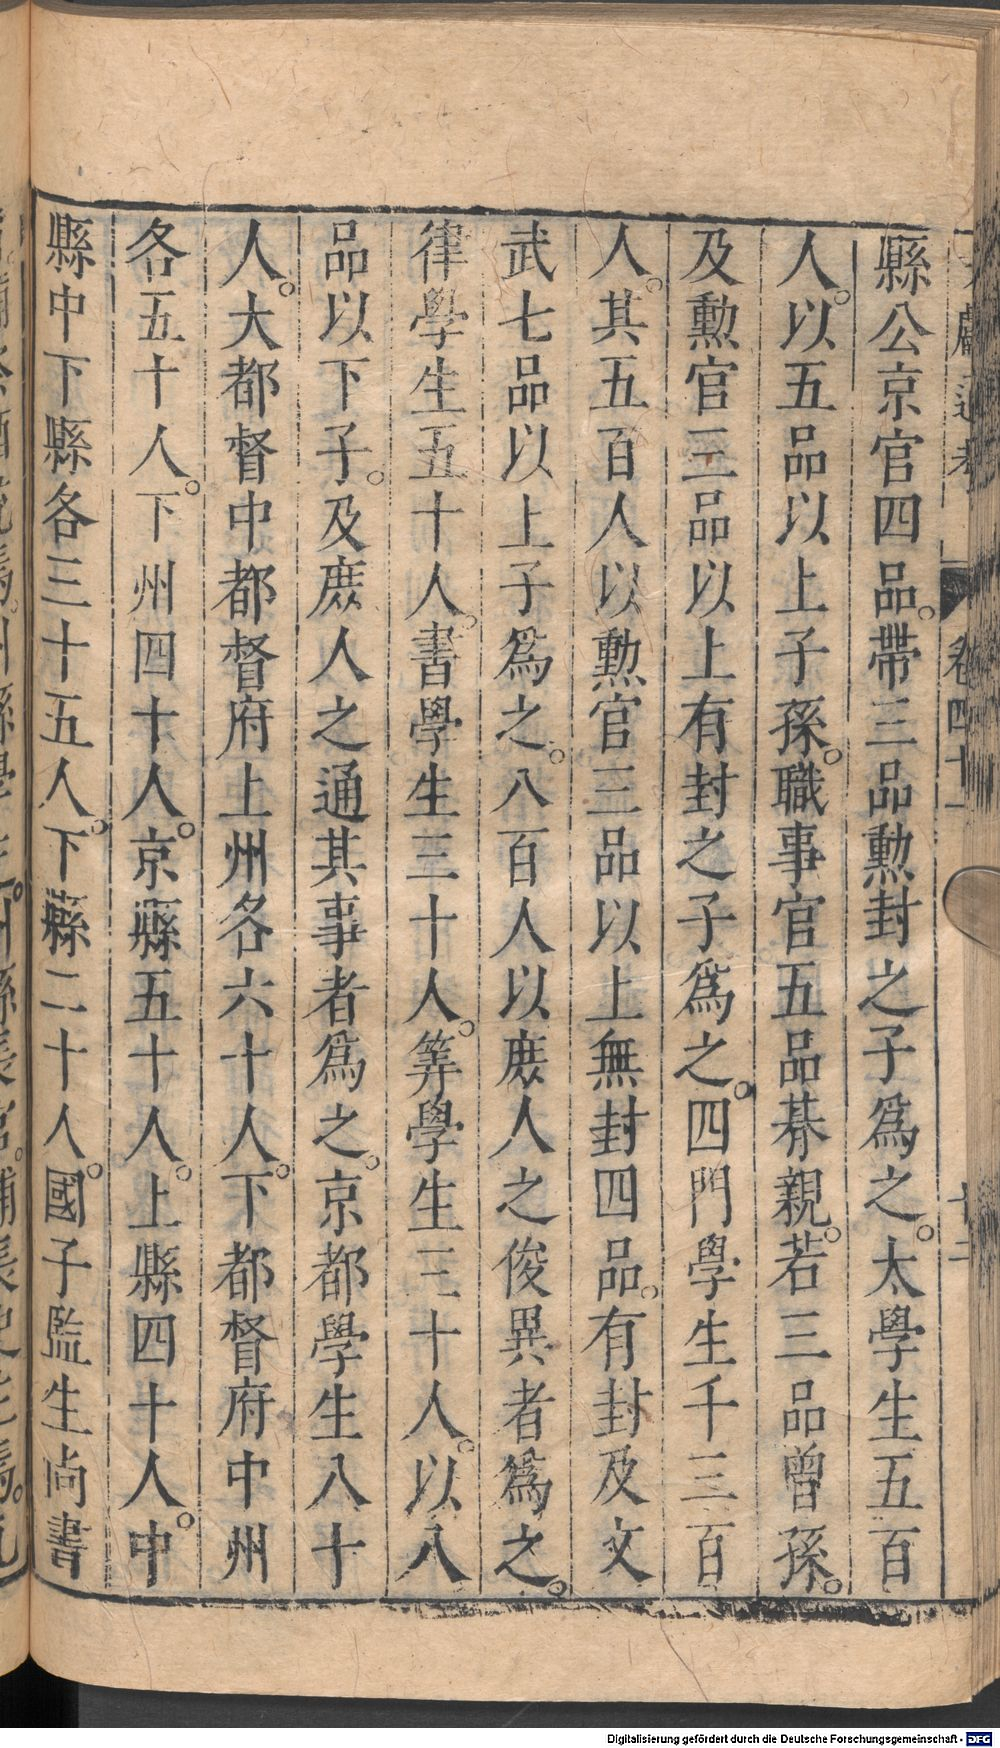 縣公京官四品。帶三品勲封之子爲之。太學生五百
人。以五品以上子孫。職事官五品朞親。若三品曾孫。
及勲官三品以上有封之子爲之。四門學生千三百
人。其五百人以勲官三品以上無封四品。有封及文
武七品以上子爲之。八百人以庶人之俊異者爲之。
律學生五十人。書學生三十人。筭學生三十人。以八
品以下子。及庶人之通其事者爲之。京都學生八十
人。大都督中都督府上州各六十人。下都督府中州
各五十人。下州四十人。京縣五十人。上縣四十人。中
縣中下縣各三十五人。下縣二十人。國子監生尚書
卷四十一
十二
Digitalisierung gefördert durch die Deutsche Forschungsgemeinschaft - DFG